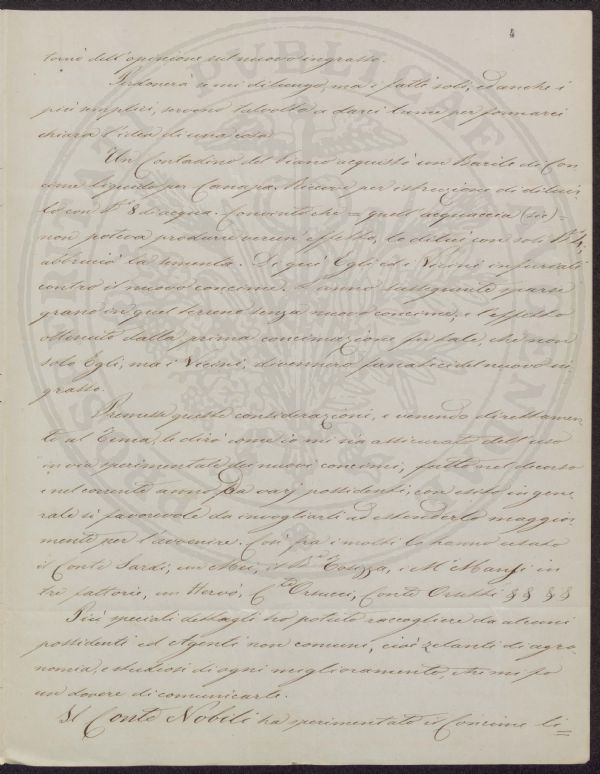 4
torno dell'opinione sul nuovo ingrasso.
Perdonerà se mi dilungo, ma i fatti soli, ed anche i
più semplici, servono talvolta a darci lume per formarci
chiara l'idea di una cosa.
Un Contadino del Piano acquistò un Barile di Con-
cime liquido per Canapa. Riceve per istruzione di diluir-
lo con P.ti 8 di acqua. Convinto che = quell'acquaccia (sic) =
non poteva produrre verun effetto, lo diluì con soli P.ti 4,
abbruciò la sementa. Di quì Egli ed i Vicini infuriati
contro il nuovo concime. L'anno susseguente sparse
grano in quel terreno senza nuovo concime, e l'effetto
ottenuto dalla prima concimazione fu tale, che non
solo Egli, ma i Vicini, divennero fanatici del nuovo in-
grasso.
Premesse queste considerazioni, e venendo direttamen-
te al Tema, le dirò come io mi sia assicurato dell'uso
in via sperimentale dei nuovi concimi, fatto nel decorso
e nel corrente anno da varj possidenti, con esito in gene-
rale sì favorevole da invogliarli ad estenderlo maggior-
mente per l'avvenire. Così fra i molti lo hanno usato
il Conte Sardi, un Mei, il Tosizza, i M.si Mansi in
tre fattorie, un Hervò, C.te Orsucci, Conte Orsetti § § § §
Più speciali dettagli ho potuto raccogliere da alcuni
possidenti ed Agenti non comuni, cioè zelanti di agro-
nomia, e studiosi di ogni miglioramento, che mi fo
un dovere di comunicarle.
Il Conte Nobili ha sperimentato il Concime li=